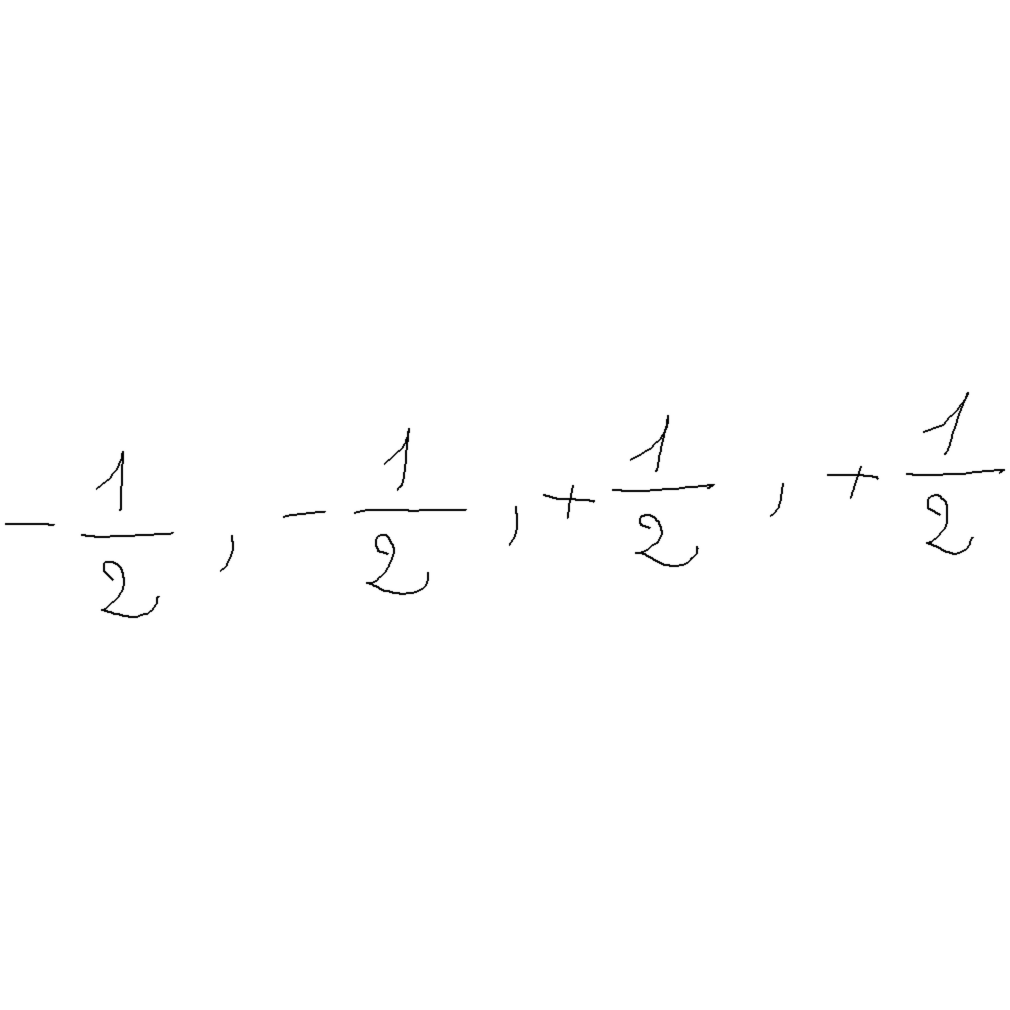 -\frac{1}{2}, -\frac{1}{2}, +\frac{1}{2}, +\frac{1}{2}